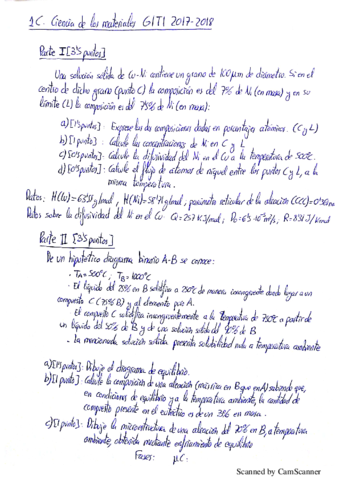 1C. Ciencia de los materiales GITI 2017-2018
Parte I [3'5 puntos]
Una solución sólida de Cu-Ni contiene un grano de 100 µm de diámetro. Si en el
centro de dicho grano (punto C) la composición es del 7% de Ni (en masa) y en su
límite (L) la composición es del 75% de Ni (en masa):
a) [1'5 puntos]. Expresar las dos composiciones dadas en porcentajes atómicos. (C y L)
b) [1 punto]. Calcule las concentraciones de Ni en C y L
c) [0'5 puntos]. Calcule la difusividad del Ni en el Cu a la temperatura de 500°C.
d) [0'5 puntos]. Calcule el flujo de átomos de níquel entre los puntos C y L, a la
misma temperatura.
Datos: M(Cu)= g/mol, M(Ni)= g/mol, parámetro reticular de la aleación (CCC)=
Datos sobre la difusividad del Ni en el Cu: Q=257 KJ/mol; R=8'31 J/Kmol
Parte II [3'5 puntos]
De un hipotético diagrama binario A-B se conoce:
- TA=500°C; TB=1000°C
- El líquido del 25% en B solidifica a 250°C de manera invariante dando lugar a un
compuesto C (75% B) y al elemento puro A.
El compuesto C solidifica incongruentemente a la temperatura de 750°C a partir de
un líquido del 50% de B y de una solución sólida del 90% de B.
- La mencionada solución sólida presenta solubilidad nula a temperatura ambiente
a) [1'5 puntos]: Dibuje el diagrama de equilibrio.
b) [1 punto]: Calcule la composición de una aleación (más rica en B que en A) sabiendo que,
en condiciones de equilibrio y a la temperatura ambiente, la cantidad de
compuesto presente en el eutéctico es de un % en masa.
c) [1 punto]: Dibuje la microestructura de una aleación del % en B, a temperatura
ambiente, obtenida mediante enfriamiento de equilibrio
Fases: µC:
Scanned by CamScanner